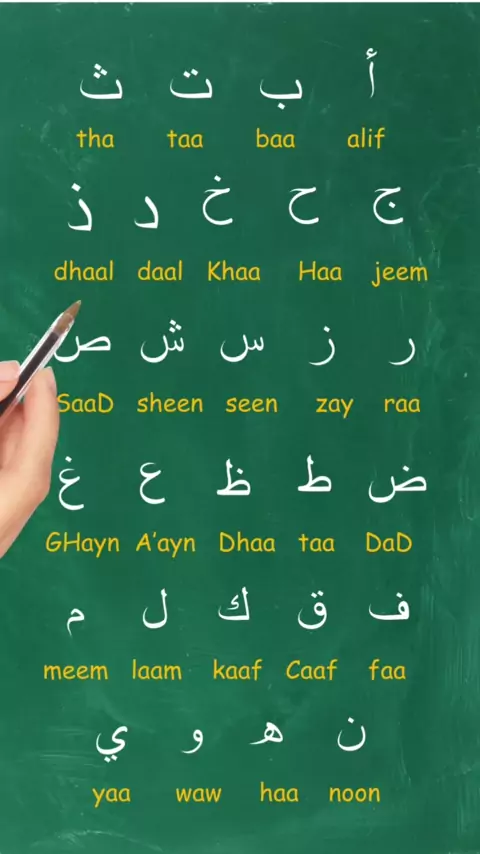 أ ب ت ث
tha taa baa alif
ج ح خ د ذ
dhaal daal Khaa Haa jeem
ر ز س ش ص
SaaD sheen seen zay raa
ض ط ظ ع غ
GHayn A'ayn Dhaa taa DaD
ف ق ك ل م
meem laam kaaf Caaf faa
ن ه و ي
yaa waw haa noon